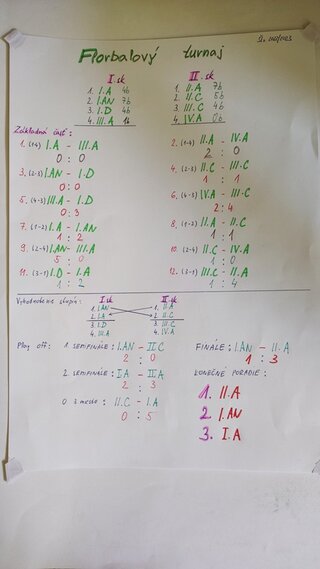 Florbalový turnaj
I. sk II. sk
1. I.A 4b 1. II.A 7b
2. I.AN 7b 2. II.C 5b
3. I.D 4b 3. III.C 4b
4. III.A 1b 4. IV.A 0b
Základná časť:
1. (1-4) I.A - III.A 2. (1-4) II.A - IV.A
0 : 0 2 : 0
3. (2-3) I.AN - I.D 4. (2-3) II.C - III.C
0 : 0 1 : 1
5. (4-3) III.A - I.D 6. (4-3) IV.A - III.C
0 : 3 2 : 4
7. (1-2) I.A - I.AN 8. (1-2) II.A - II.C
1 : 2 1 : 1
9. (2-4) I.AN - III.A 10. (2-4) II.C - IV.A
5 : 0 1 : 0
11. (3-1) I.D - I.A 12. (3-1) III.C - II.A
1 : 2 1 : 4
Vyhodnotenie skupín: I. sk II. sk
1. I.AN 1. II.A
2. I.A 2. II.C
3. I.D 3. III.C
4. III.A 4. IV.A
Play off: 1. SEMIFINÁLE: I.AN - II.C FINÁLE: I.AN - II.A
2 : 0 1 : 3
2. SEMIFINÁLE: I.A - II.A KONEČNÉ PORADIE:
2 : 3 1. II.A
O 3. miesto: II.C - I.A 2. I.AN
0 : 5 3. I.A